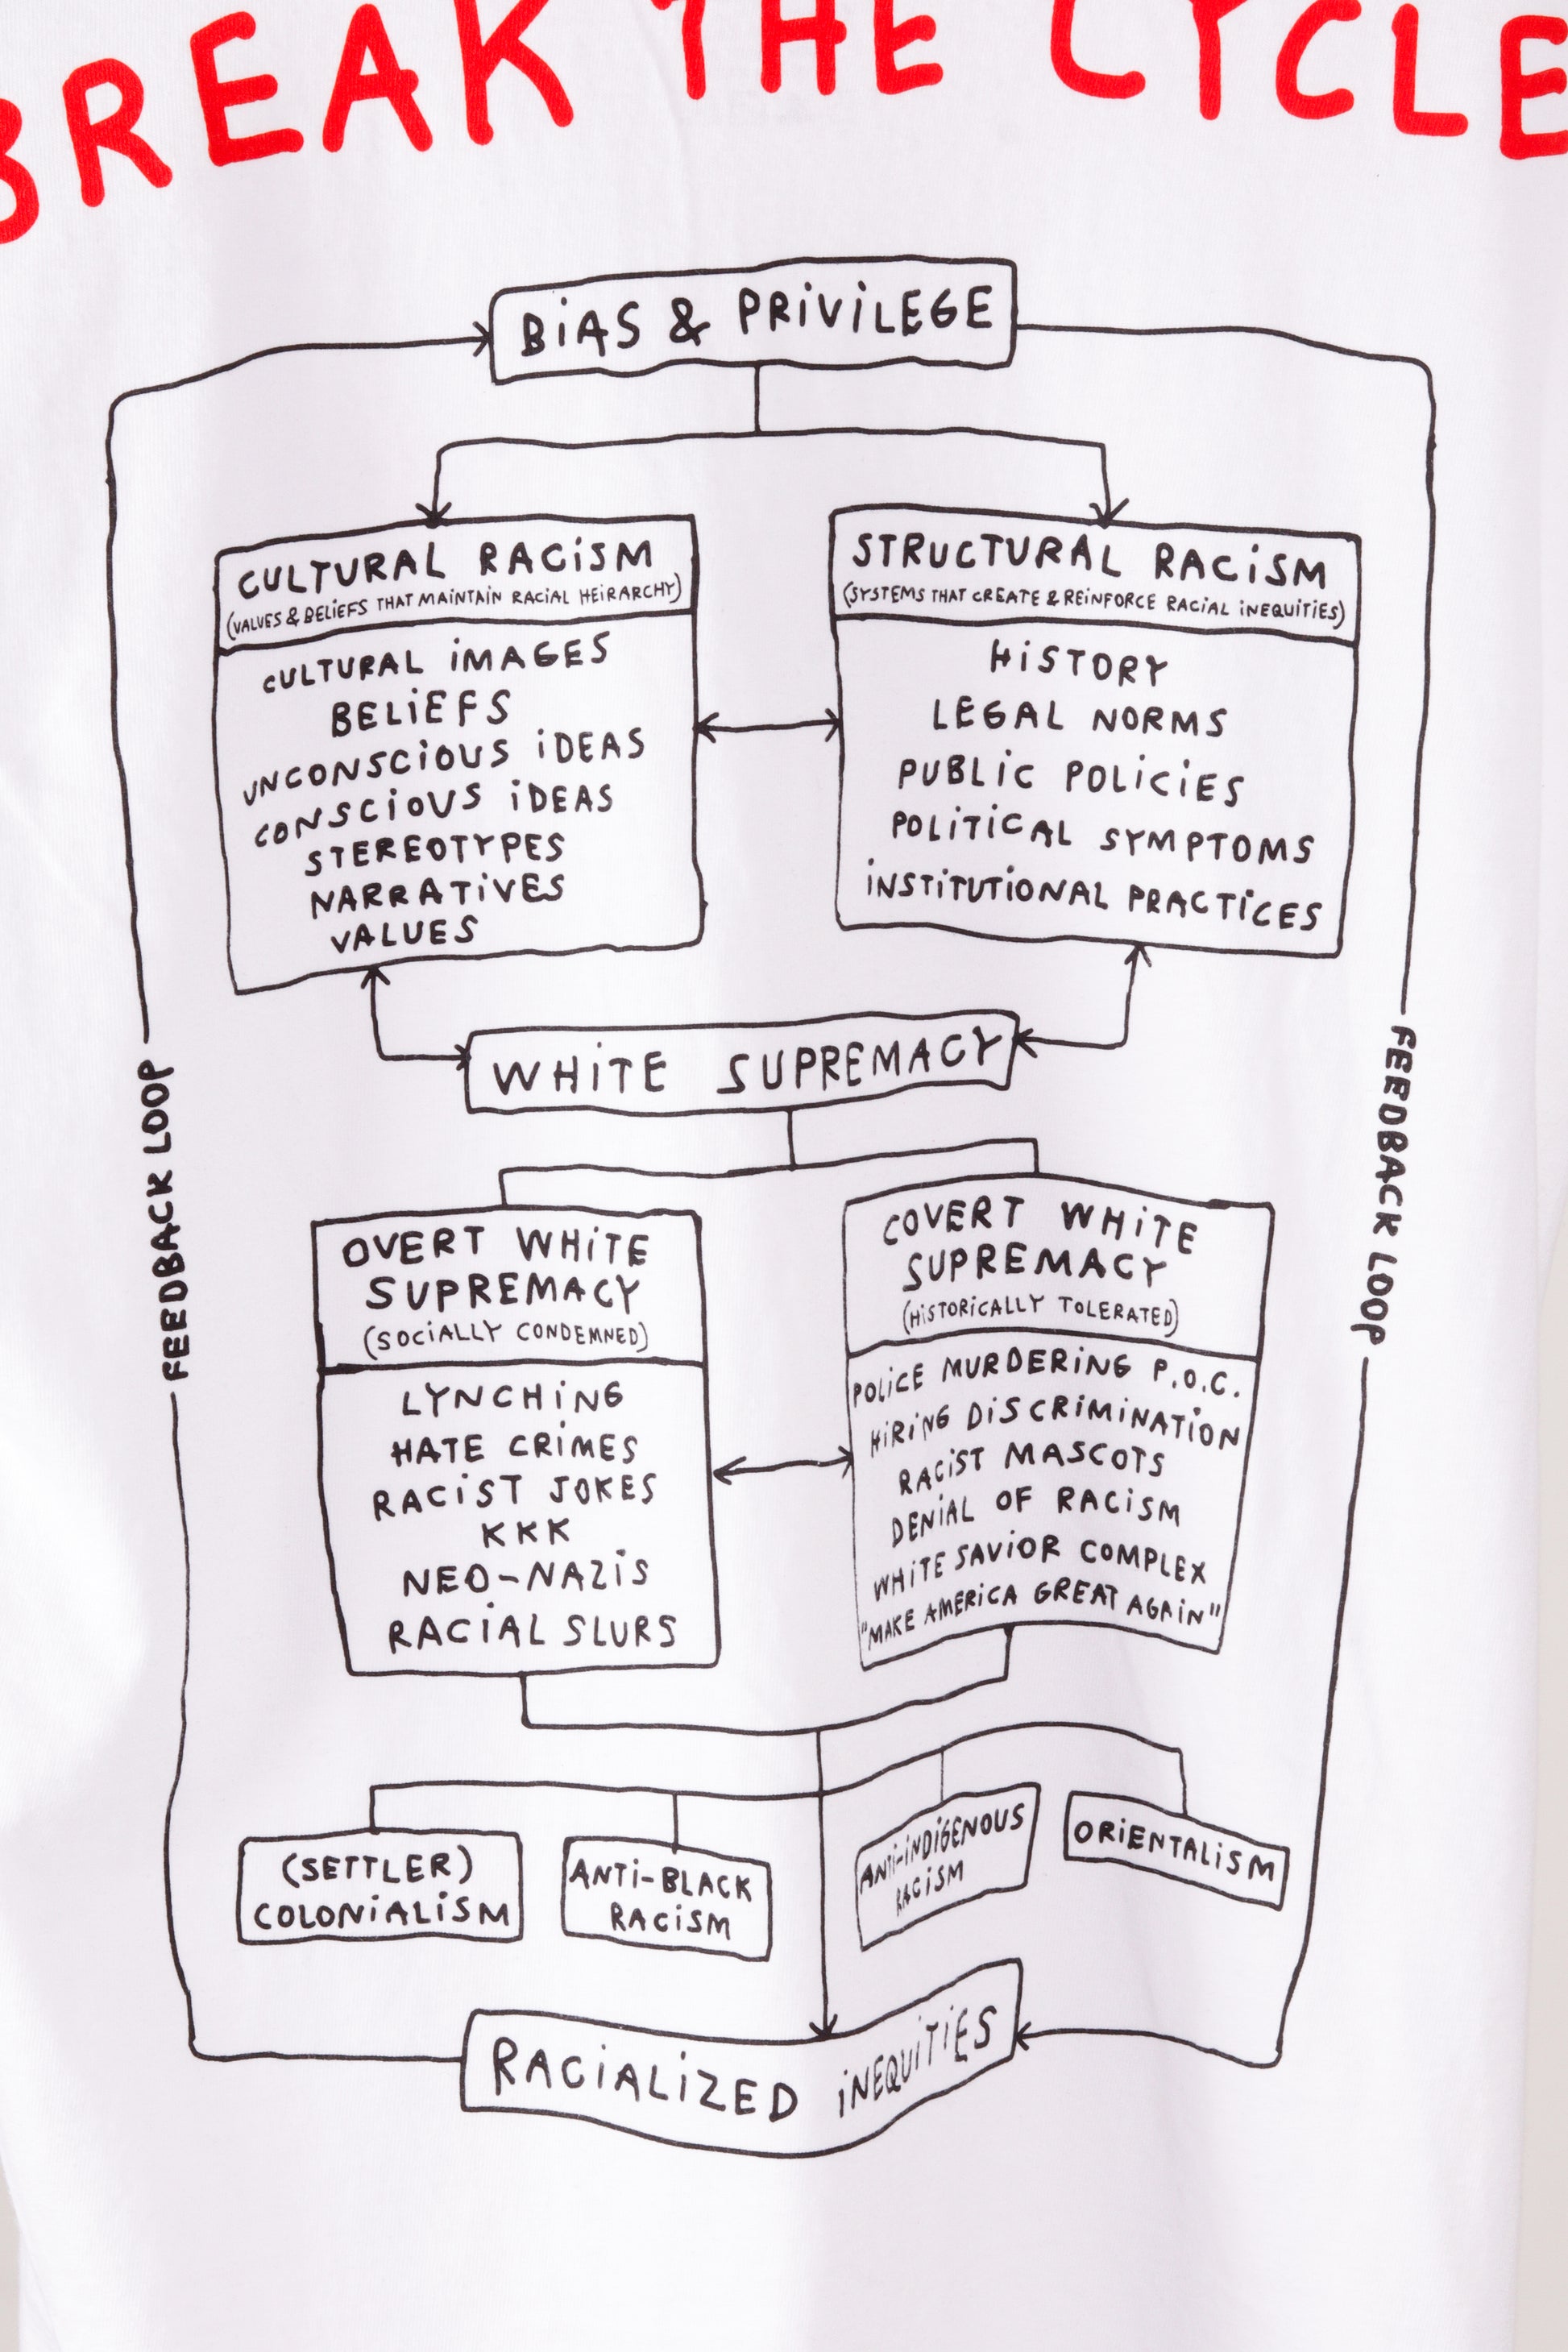 BREAK THE CYCLE
BiAS & PRiViLEGE
CULTURAL RACiSM
(VALUES & BELiEFS THAT MAiNTAiN RACiAL HEiRARCHY)
CULTURAL iMAGES
BELiEFS
UNCONSCiOUS iDEAS
CONSCiOUS iDEAS
STEREOTYPES
NARRATiVES
VALUES
STRUCTURAL RACiSM
(SYSTEMS THAT CREATE & REiNFORCE RACiAL iNEQUiTiES)
HiSTORY
LEGAL NORMS
PUBLiC POLiCiES
POLiTiCAL SYMPTOMS
iNSTiTUTiONAL PRACTiCES
WHiTE SUPREMACY
FEEDBACK LOOP
FEEDBACK LOOP
OVERT WHiTE
SUPREMACY
(SOCiALLY CONDEMNED)
LYNCHiNG
HATE CRiMES
RACiST JOKES
KKK
NEO-NAZiS
RACiAL SLURS
COVERT WHiTE
SUPREMACY
(HiSTORiCALLY TOLERATED)
POLiCE MURDERiNG P.O.C.
HiRiNG DiSCRiMiNATiON
RACiST MASCOTS
DENiAL OF RACiSM
WHiTE SAViOR COMPLEX
"MAKE AMERiCA GREAT AGAiN"
(SETTLER)
COLONiALiSM
ANTi-BLACK
RACiSM
ANTi-iNDiGENOUS
RACiSM
ORiENTALiSM
RACiALiZED iNEQUiTiES